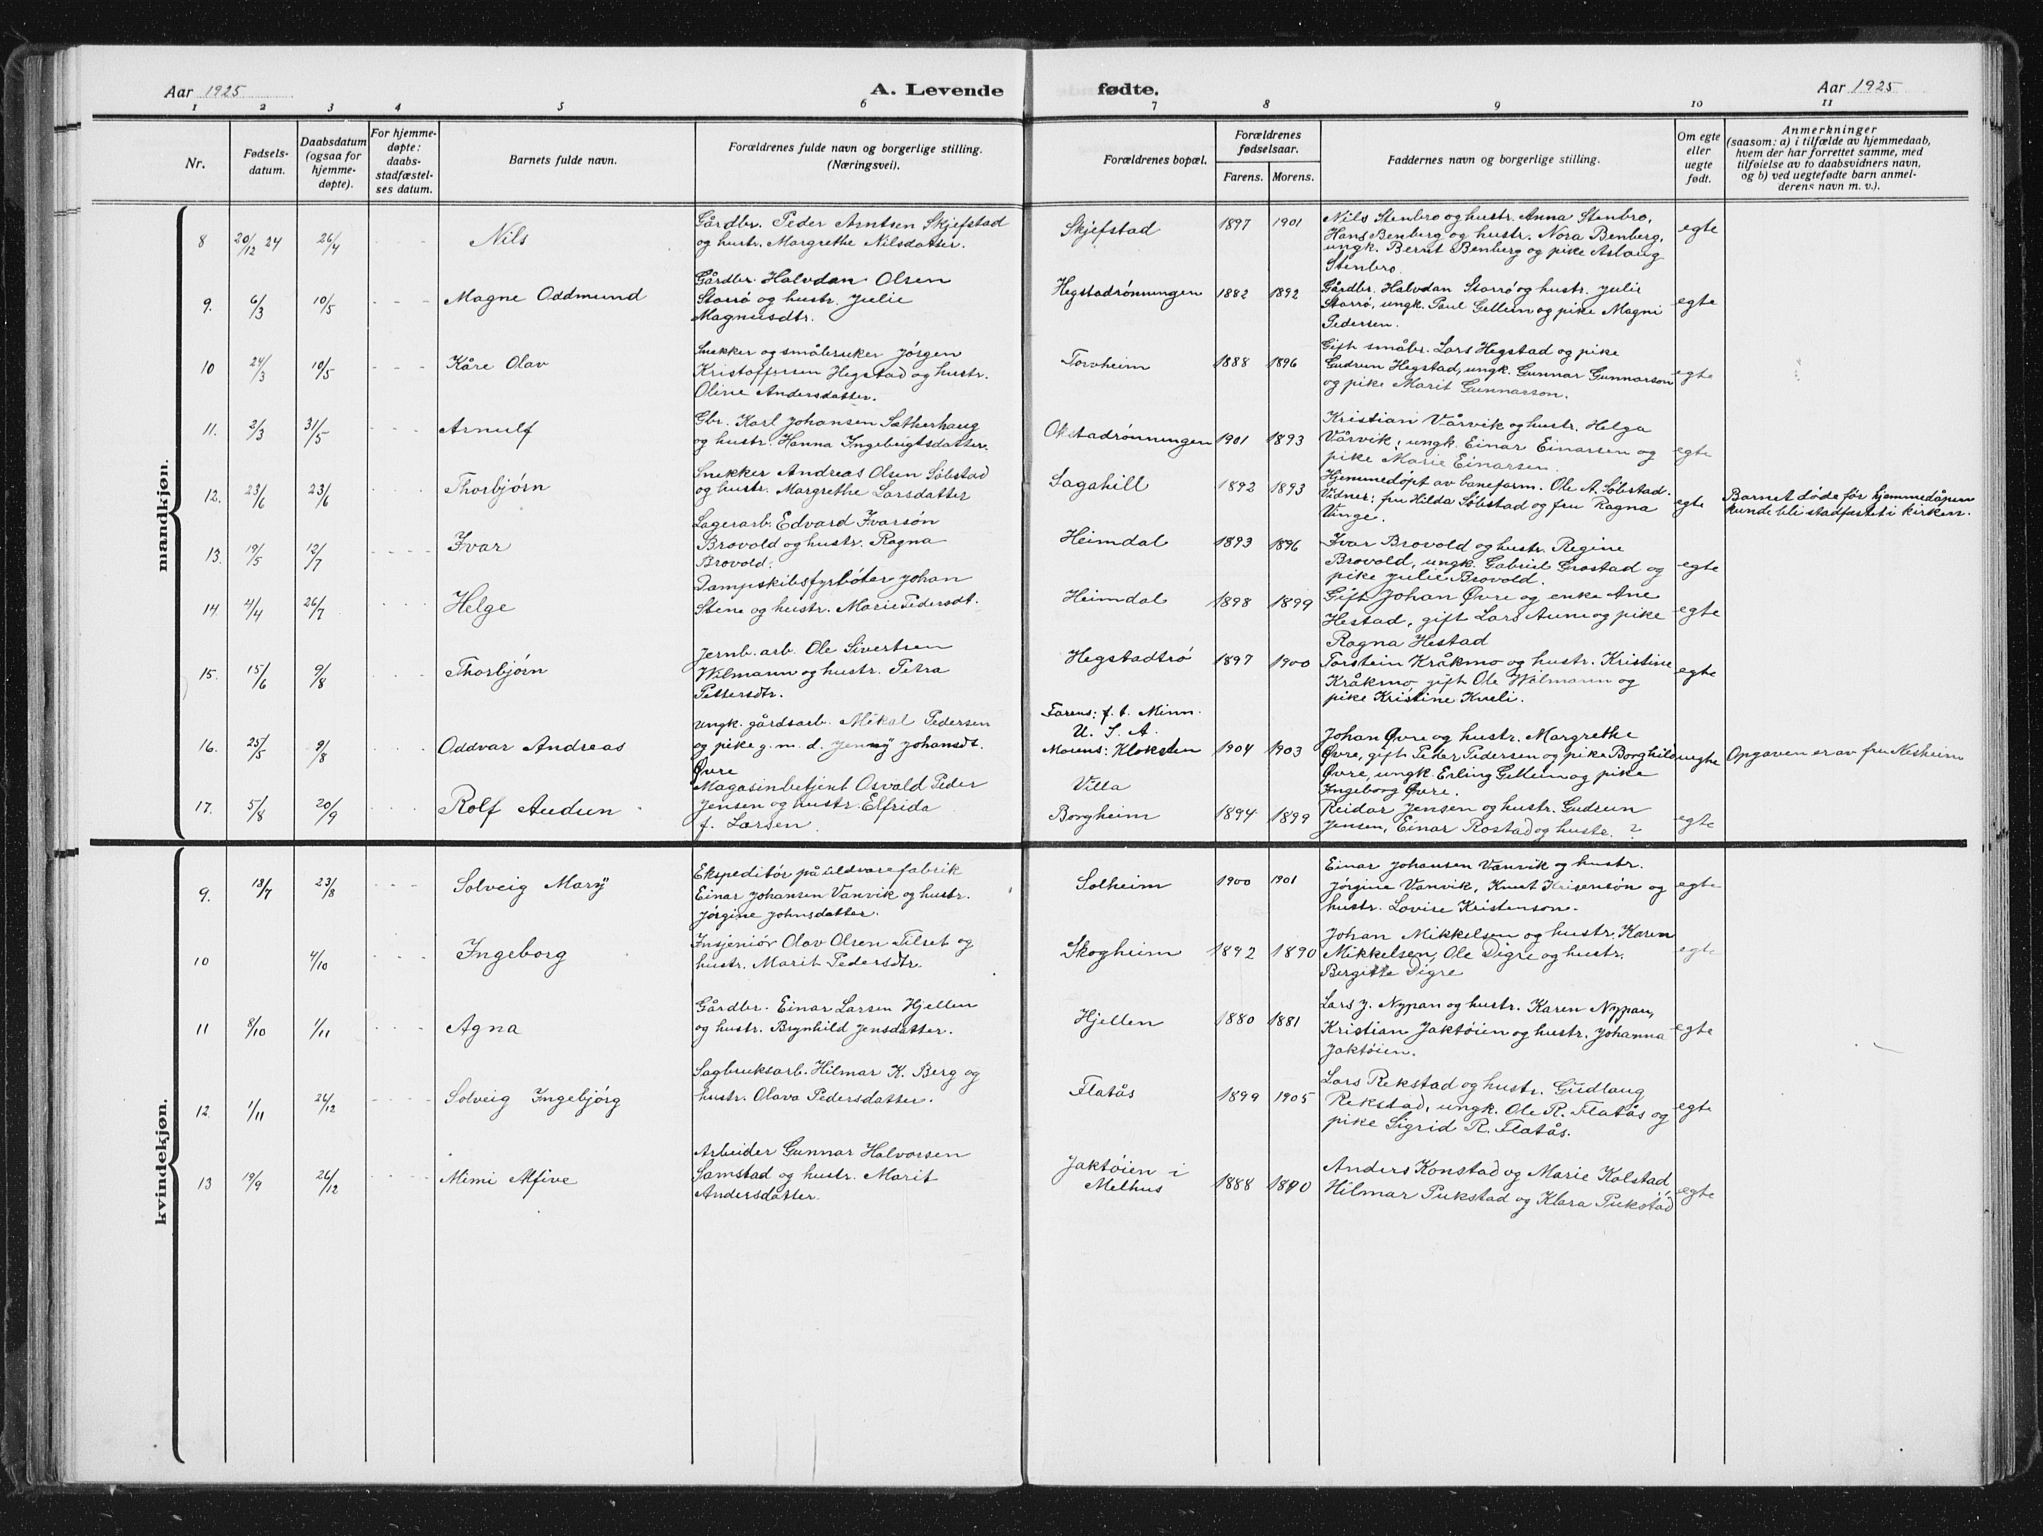 Aar 1925 A. Levende fødte. Aar 1925
1 2 3 4 5 6 7 8 9 10 11
Nr. Fødsels-datum. Daabsdatum (ogsaa for hjemme-døpte). For hjemme-døpte: daabs-stadfæstel-ses datum. Barnets fulde navn. Forældrenes fulde navn og borgerlige stilling. (Næringsvei). Forældrenes bopæl. Forældrenes fødselsaar. Farens. Morens. Faddernes navn og borgerlige stilling. Om egte eller uegte født. Anmerkninger (saasom: a) i tilfælde av hjemmedaab, hvem der har forrettet samme, med tilføielse av to daabsvidners navn, og b) ved uegtefødte barn anmel-derens navn m. v.).
mandkjøn.
8 20/12 24 26/4 Nils
Gårdbr. Peder Arntsen Skjefstad
og hustr. Margrethe Nilsdatter.
Skjefstad 1897 1901
Nils Stenbro og hustr. Anna Stenbro,
Hans Benberg og hustr. Nora Benberg,
ungk. Bernt Benberg og pike Aslaug
Stenbro.
egte
9. 6/3 10/5 Magne Oddmund
Gårdbr. Halvdan Olsen
Storrø og hustr. Julie
Magnusdtr.
Hegstadrønningen 1882 1892
Gårdbr. Halvdan Storrø og hustr. Julie
Storrø, ungk. Paul Gellein og pike Magni
Pedersen.
egte
10 24/3 10/5 Kåre Olav
Snekker og småbruker Jørgen
Kristoffersen Hegstad og hustr.
Oline Andersdatter.
Torvheim 1888 1896
Gift småbr. Lars Hegstad og pike
Gudrun Hegstad, ungk. Gunnar Gunnarson
og pike Marit Gunnarson.
egte
11. 2/3 31/5 Arnulf
Gbr. Karl Johansen Sætherhaug
og hustr. Hanna Ingebrigtsdatter.
Okstadrønningen 1901 1893
Kristian Vårvik og hustr. Helga
Vårvik, ungk. Einar Einarsen og
pike Marie Einarsen.
egte
12. 23/6 23/6 Thorbjørn
Snekker Andreas Olsen Søbstad
og hustr. Margrethe Larsdatter
Sagahill 1892 1893
Hjemmedøpt av baneform. Ole A. Søbstad.
Vidner: fru Hilda Søbstad og fru Ragna
Vinge.
egte
Barnet døde før hjemmedåpen
kunde bli stadfæstet i kirken.
13. 19/5 12/7 Ivar
Lagerarb. Edvard Ivarsøn
Brovold og hustr. Ragna
Brovold.
Heimdal 1893 1896
Ivar Brovold og hustr. Regine
Brovold, ungk. Gabriel Grostad og
pike Julie Brovold.
egte
14. 4/4 26/7 Helge
Dampskibsfyrbøter Johan
Stene og hustr. Marie Pedersdt.
Heimdal 1898 1899
Gift Johan Øvre og enke Ane
Hestad, gift Lars Aune og pike
Ragna Hestad
egte
15. 15/6 9/8 Thorbjørn
Jernb. arb. Ole Sivertsen
Wilmann og hustr. Petra
Pettersdtr.
Hegstadtrø 1897 1900
Torstein Kråkmo og hustr. Kristine
Kråkmo, gift Ole Wilmann og
pike Kristine Kveli.
egte
16. 25/5 9/8 Oddvar Andreas
Ungk. gårdsarb. Mikal Pedersen
og pike g. m. d. Jenny Johansdt.
Øvre
Farens: f. t. Minn.
U. S. A.
Morens: Kloksten 1904 1903
Johan Øvre og hustr. Margrethe
Øvre, gift Peder Pedersen og pike Borghild
Øvre, ungk. Erling Gellein og pike
Ingeborg Øvre.
uegte Opgaven er av fru Nesheim
17. 5/8 20/9 Rolf Audun
Magasinbetjent Osvald Peder
Jensen og hustr. Elfrida
f. Larsen.
Villa
Borgheim 1894 1899
Reidar Jensen og hustr. Gudrun
Jensen, Einar Rostad og hustr. ?
egte
kvindekjøn.
9. 18/7 23/8 Solveig Mary
Ekspeditør på uldvarefabrik
Einar Johansen Vanvik og hustr.
Jørgine Johnsdatter.
Solheim 1900 1901
Einar Johansen Vanvik og hustr.
Jørgine Vanvik, Knut Kristensøn og
hustr. Lovise Kristenson.
egte
10 4/10 Ingeborg
Insjeniør Olav Olsen Tilset og
hustr. Marit Pedersdtr.
Skogheim 1892 1890
Johan Mikkelsen og hustr. Karen
Mikkelsen, Ole Digre og hustr.
Bergitte Digre
egte
11 8/10 1/11 Agna
Gårdbr. Einar Larsen Hjellen
og hustr. Brynhild Jensdatter.
Hjellen 1880 1881
Lars J. Nypan og hustr. Karen Nypan,
Kristian Jaktøien og hustr. Johanna
Jaktøien.
egte
12 1/11 26/12 Solveig Ingebjørg
Sagbruksarb. Hilmar K. Berg og
hustr. Olava Pedersdatter.
Flatås 1899 1905
Lars Rekstad og hustr. Gudlaug
Rekstad, ungk. Ole R. Flatås og
pike Sigrid R. Flatås.
egte
13 19/9 26/12 Mimi Alfive
Arbeider Gunnar Halvorsen
Samstad og hustr. Marit
Andersdatter.
Jaktøien i
Melhus 1888 1890
Anders Konstad og Marie Kolstad
Hilmar Pukstad og Klara Pukstad
egte